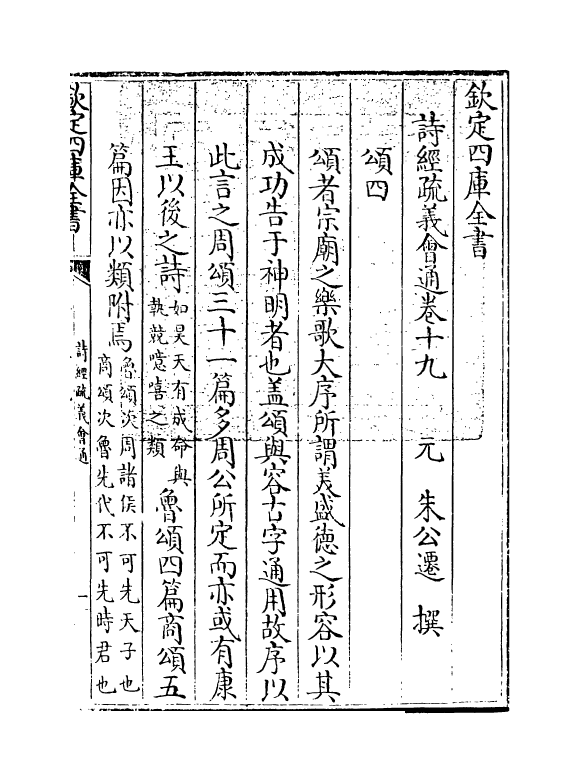 欽定四庫全書
詩經疏義會通卷十九　元　朱公遷　撰
頌四
頌者宗廟之樂歌大序所謂美盛德之形容以其
成功告于神明者也盖頌與容古字通用故序以
此言之周頌三十一篇多周公所定而亦或有康
王以後之詩如昊天有成命與執競噫嘻之類魯頌四篇商頌五
篇因亦以類附焉魯頌次周諸侯不可先天子也商頌次魯先代不可先時君也
欽定四庫全書
詩經疏義會通
一